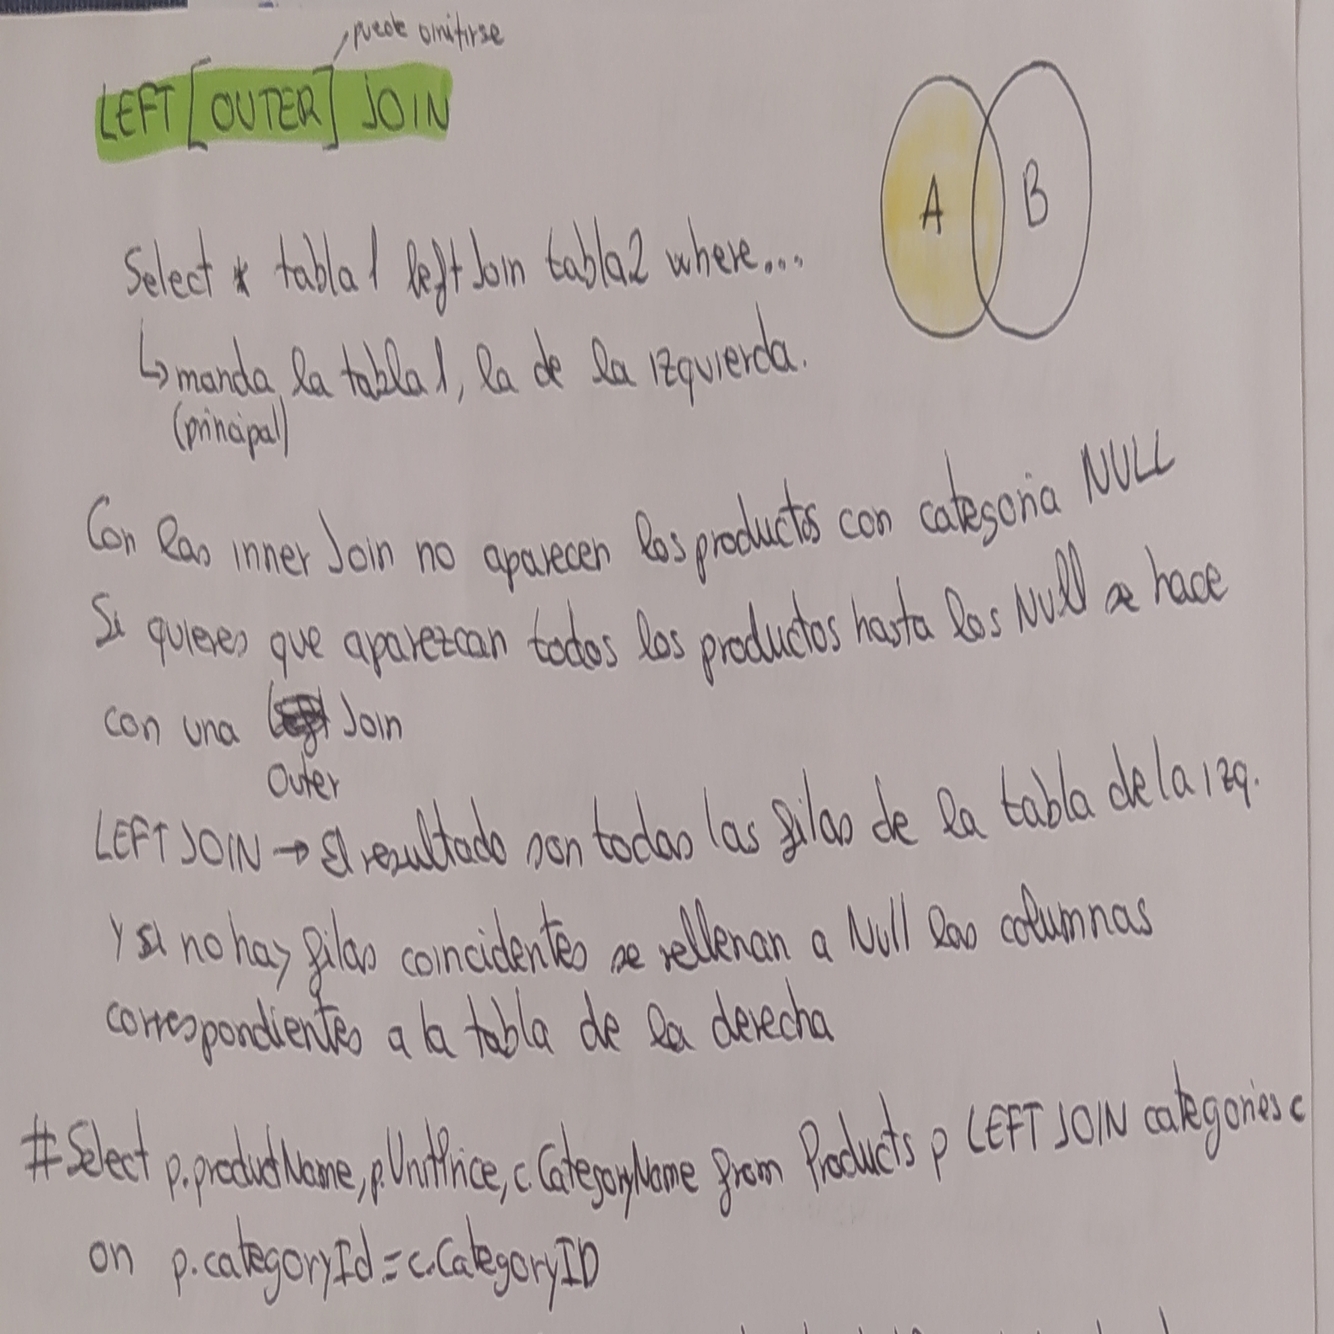 puede omitirse
LEFT [OUTER] JOIN
A B
Select * tabla1 left Join tabla2 where...
↳ manda la tabla1, la de la izquierda.
(principal)
Con las inner Join no aparecen los productos con categoria NULL
Si quieres que aparezcan todos los productos hasta los Null se hace
con una Join
Outer
LEFT JOIN → El resultado son todas las filas de la tabla de la izq.
Y si no hay filas coincidentes se rellenan a Null las columnas
correspondientes a la tabla de la derecha
#Select p.productName, p.UnitPrice, c.CategoryName from Products p LEFT JOIN categories c
on p.categoryId = c.CategoryID